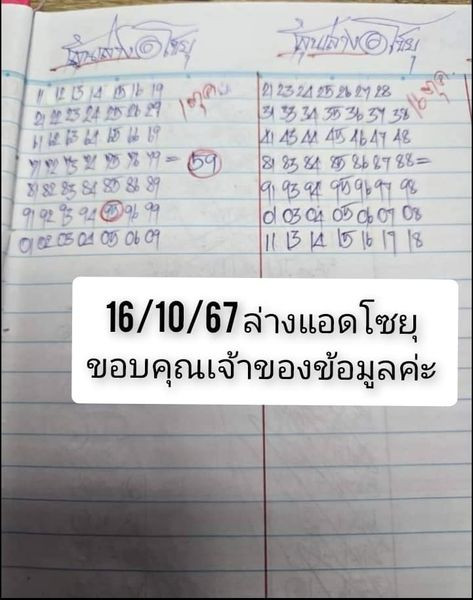 ลุ้นล่าง ① โซยุ
11 12 13 14 15 16 19
1 ตุล
21 22 23 24 25 26 29
61 62 63 64 65 66 69
71 72 73 74 75 76 79 = 59
81 82 83 84 85 86 89
91 92 93 94 95 96 99
01 02 03 04 05 06 09
ลุ้นล่าง ② โซยุ
21 23 24 25 26 27 28
16 ตุล
31 33 34 35 36 37 38
41 43 44 45 46 47 48
81 83 84 85 86 87 88 =
91 93 94 95 96 97 98
01 03 04 05 06 07 08
11 13 14 15 16 17 18
16/10/67 ล่างแอดโซยุ
ขอบคุณเจ้าของข้อมูลค่ะ